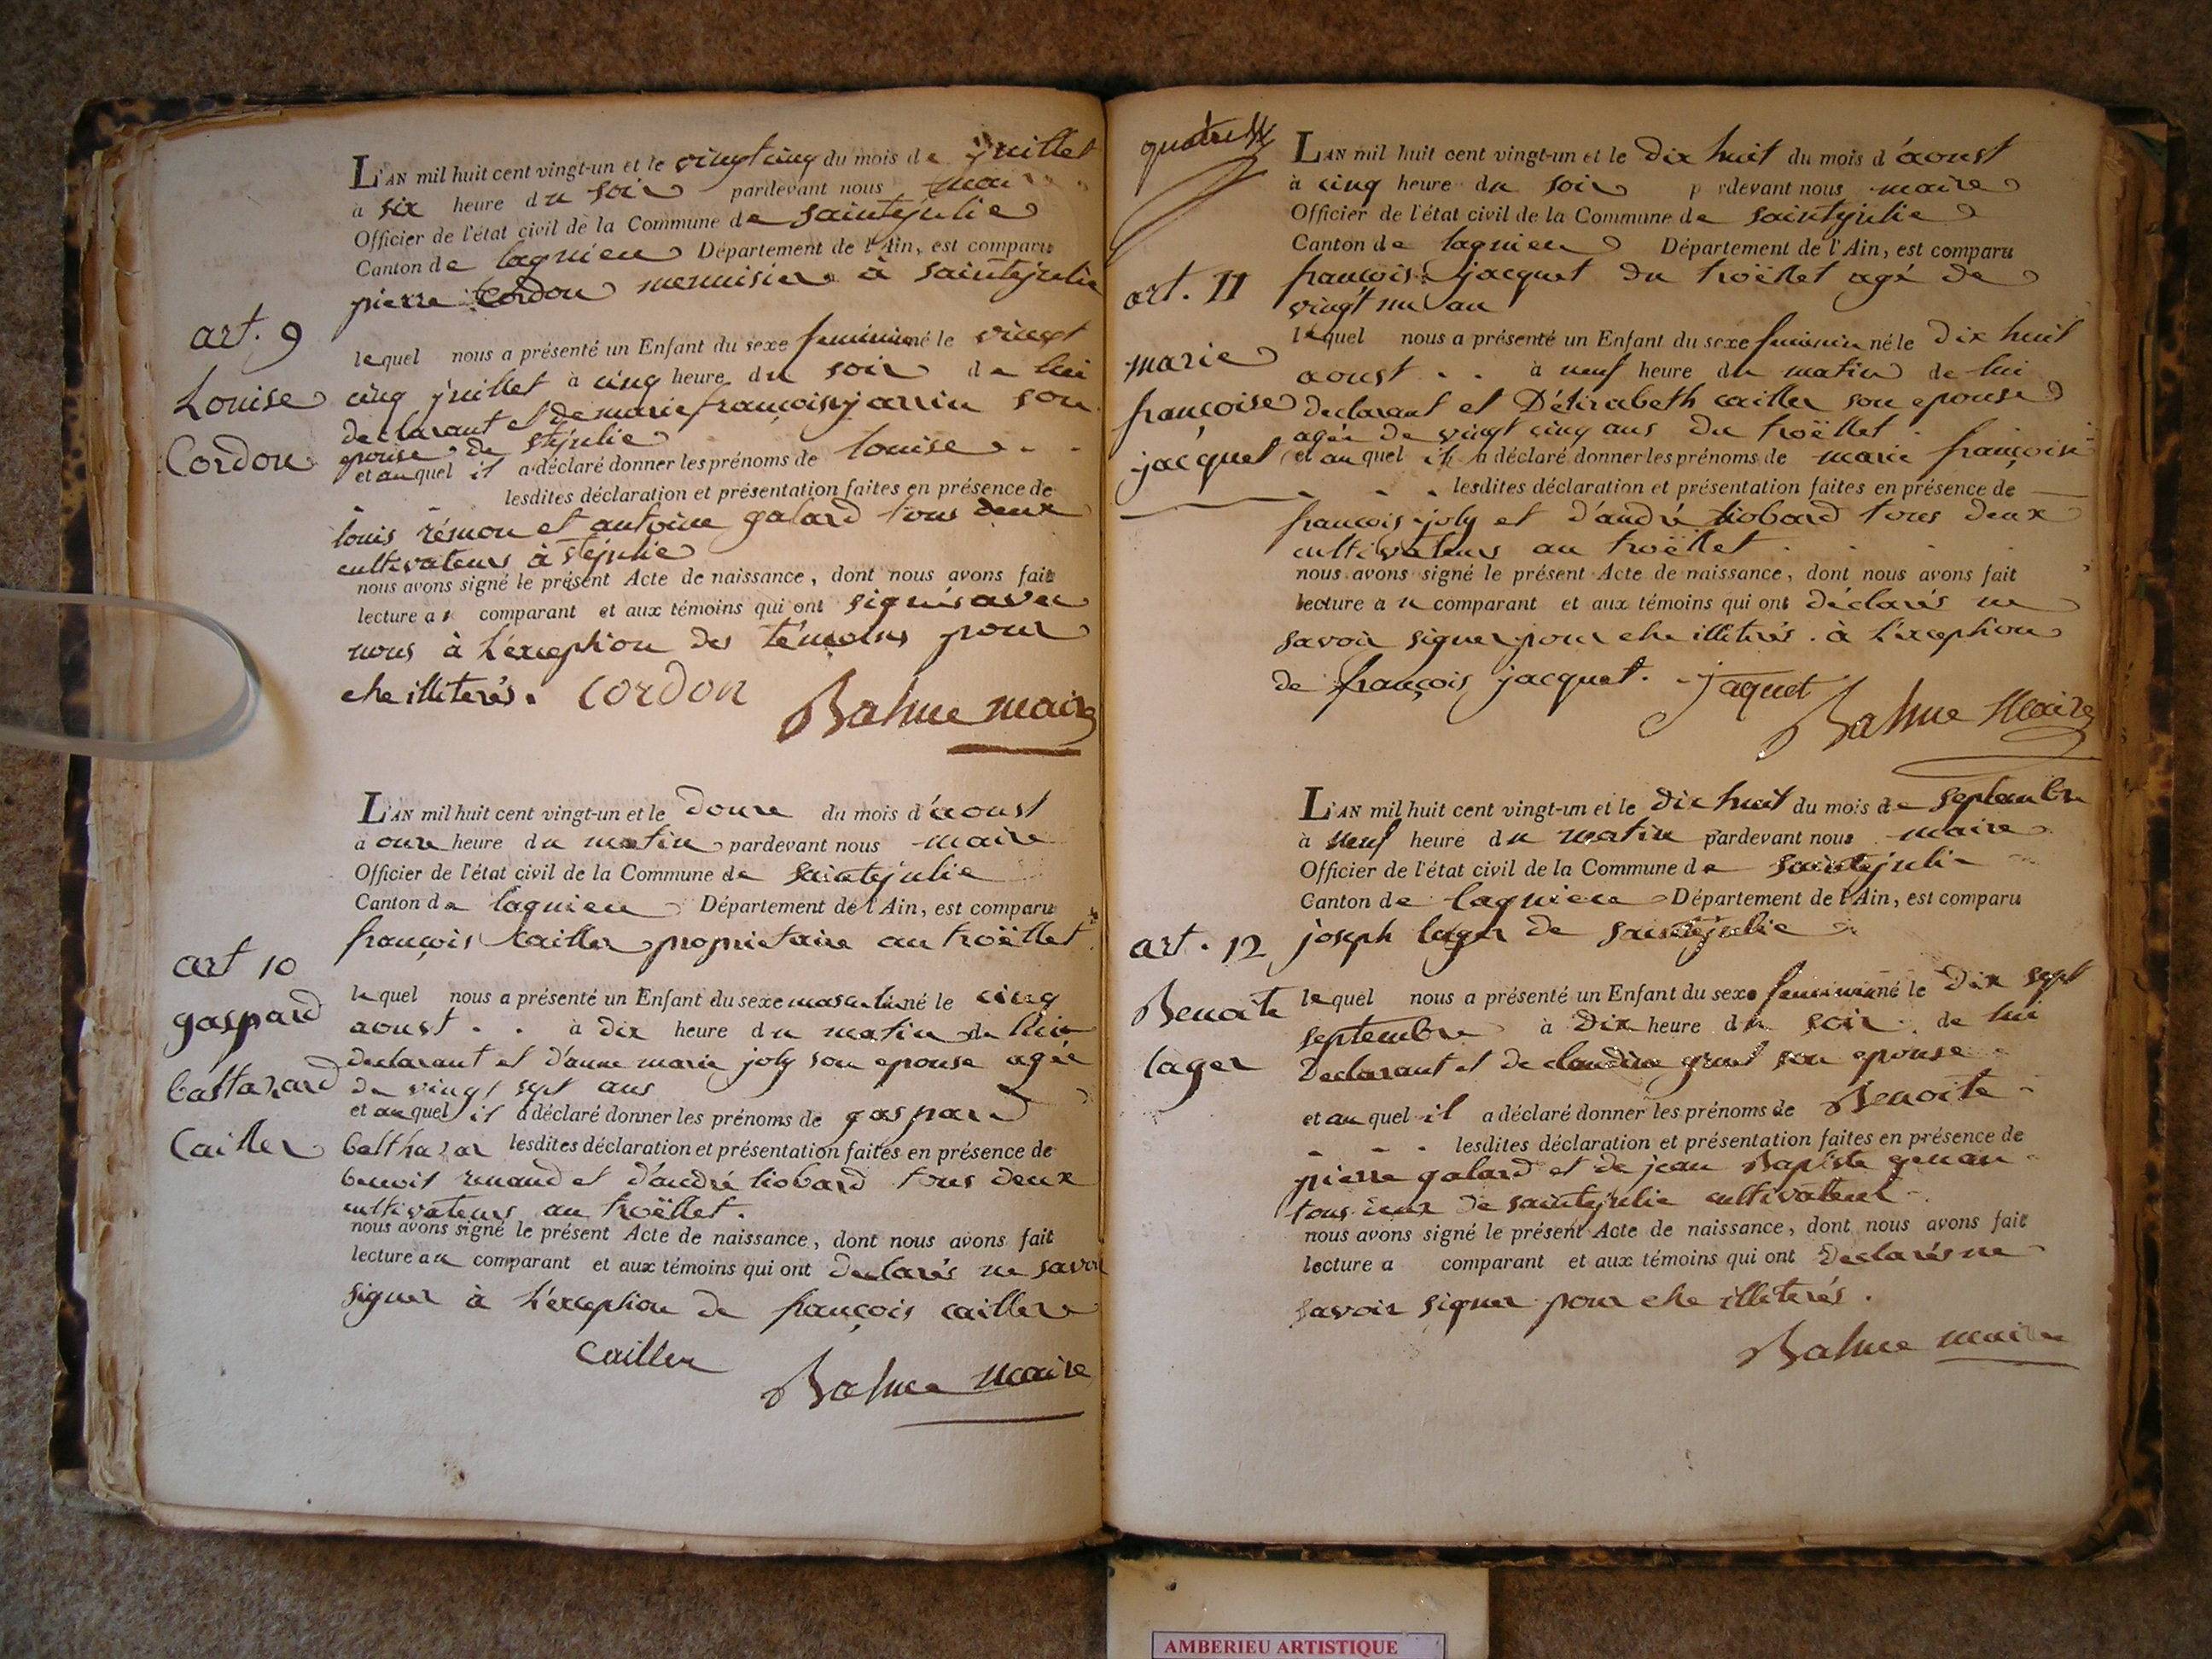 L'AN mil huit cent vingt-un et le vingt cinq du mois de juillet
à six heure du soir pardevant nous maire
Officier de l'état civil de la Commune de saintejulie
Canton de lagnieu Département de l'Ain, est comparu
pierre Cordon menuisier à saintejulie
art. 9
Louise
Cordon
lequel nous a présenté un Enfant du sexe feminin né le vingt
cinq juillet à cinq heure du soir de lui
declarant et de marie françoise jarrin son
epouse de stejulie
et auquel il a déclaré donner les prénoms de louise
lesdites déclaration et présentation faites en présence de
louis rémon et antoine galard tous deux
cultivateurs à stejulie
nous avons signé le présent Acte de naissance, dont nous avons fait
lecture au comparant et aux témoins qui ont signés avec
nous à l'éxception des témoins pour
etre illiterés. Cordon
Balme maire
L'AN mil huit cent vingt-un et le douze du mois d'aoust
à onze heure du matin pardevant nous maire
Officier de l'état civil de la Commune de saintejulie
Canton de lagnieu Département de l'Ain, est comparu
françois Cailler proprietaire au troëllet
art 10
gaspard
baltazard
Cailler
lequel nous a présenté un Enfant du sexe masculin né le cinq
aoust . . à dix heure du matin de lui
declarant et d'anne marie joly son epouse agée
de vingt sept ans
et auquel il a déclaré donner les prénoms de gaspard
balthazar lesdites déclaration et présentation faites en présence de
benoit renaud et d'andré liobard tous deux
cultivateurs au troëllet.
nous avons signé le présent Acte de naissance, dont nous avons fait
lecture au comparant et aux témoins qui ont declarés ne savoir
signer à l'éxception de françois cailler
Cailler
Balme maire
L'AN mil huit cent vingt-un et le dix huit du mois d'aoust
à cinq heure du soir pardevant nous maire
Officier de l'état civil de la Commune de saintejulie
Canton de lagnieu Département de l'Ain, est comparu
françois jacquet du troëllet agé de
vingt un an
art. 11
marie
françoise
jacquet
lequel nous a présenté un Enfant du sexe feminin né le dix huit
aoust . . à neuf heure du matin de lui
declarant et D'élizabeth cailler son epouse
agée de vingt cinq ans du troëllet
et auquel il a déclaré donner les prénoms de marie françoise
lesdites déclaration et présentation faites en présence de
francois joly et d'andré liobard tous deux
cultivateurs au troëllet
nous avons signé le présent Acte de naissance, dont nous avons fait
lecture au comparant et aux témoins qui ont déclarés ne
savoir signer pour etre illiterés. à l'éxception
de françois jacquet. jaquet
Balme Maire
L'AN mil huit cent vingt-un et le dix huit du mois de septembre
à neuf heure du matin pardevant nous maire
Officier de l'état civil de la Commune de saintejulie
Canton de lagnieu Département de l'Ain, est comparu
art. 12 joseph lager de saintejulie
Benoite
lager
lequel nous a présenté un Enfant du sexe feminin né le dix sept
septembre à Dix heure du soir de lui
Declarant et de claudine son epouse
et auquel il a déclaré donner les prénoms de Benoite
lesdites déclaration et présentation faites en présence de
pierre galard et de jean Baptiste
tous deux de saintejulie cultivateur
nous avons signé le présent Acte de naissance, dont nous avons fait
lecture a comparant et aux témoins qui ont declarés ne
savoir signer pour etre illiterés.
Balme maire
AMBERIEU ARTISTIQUE